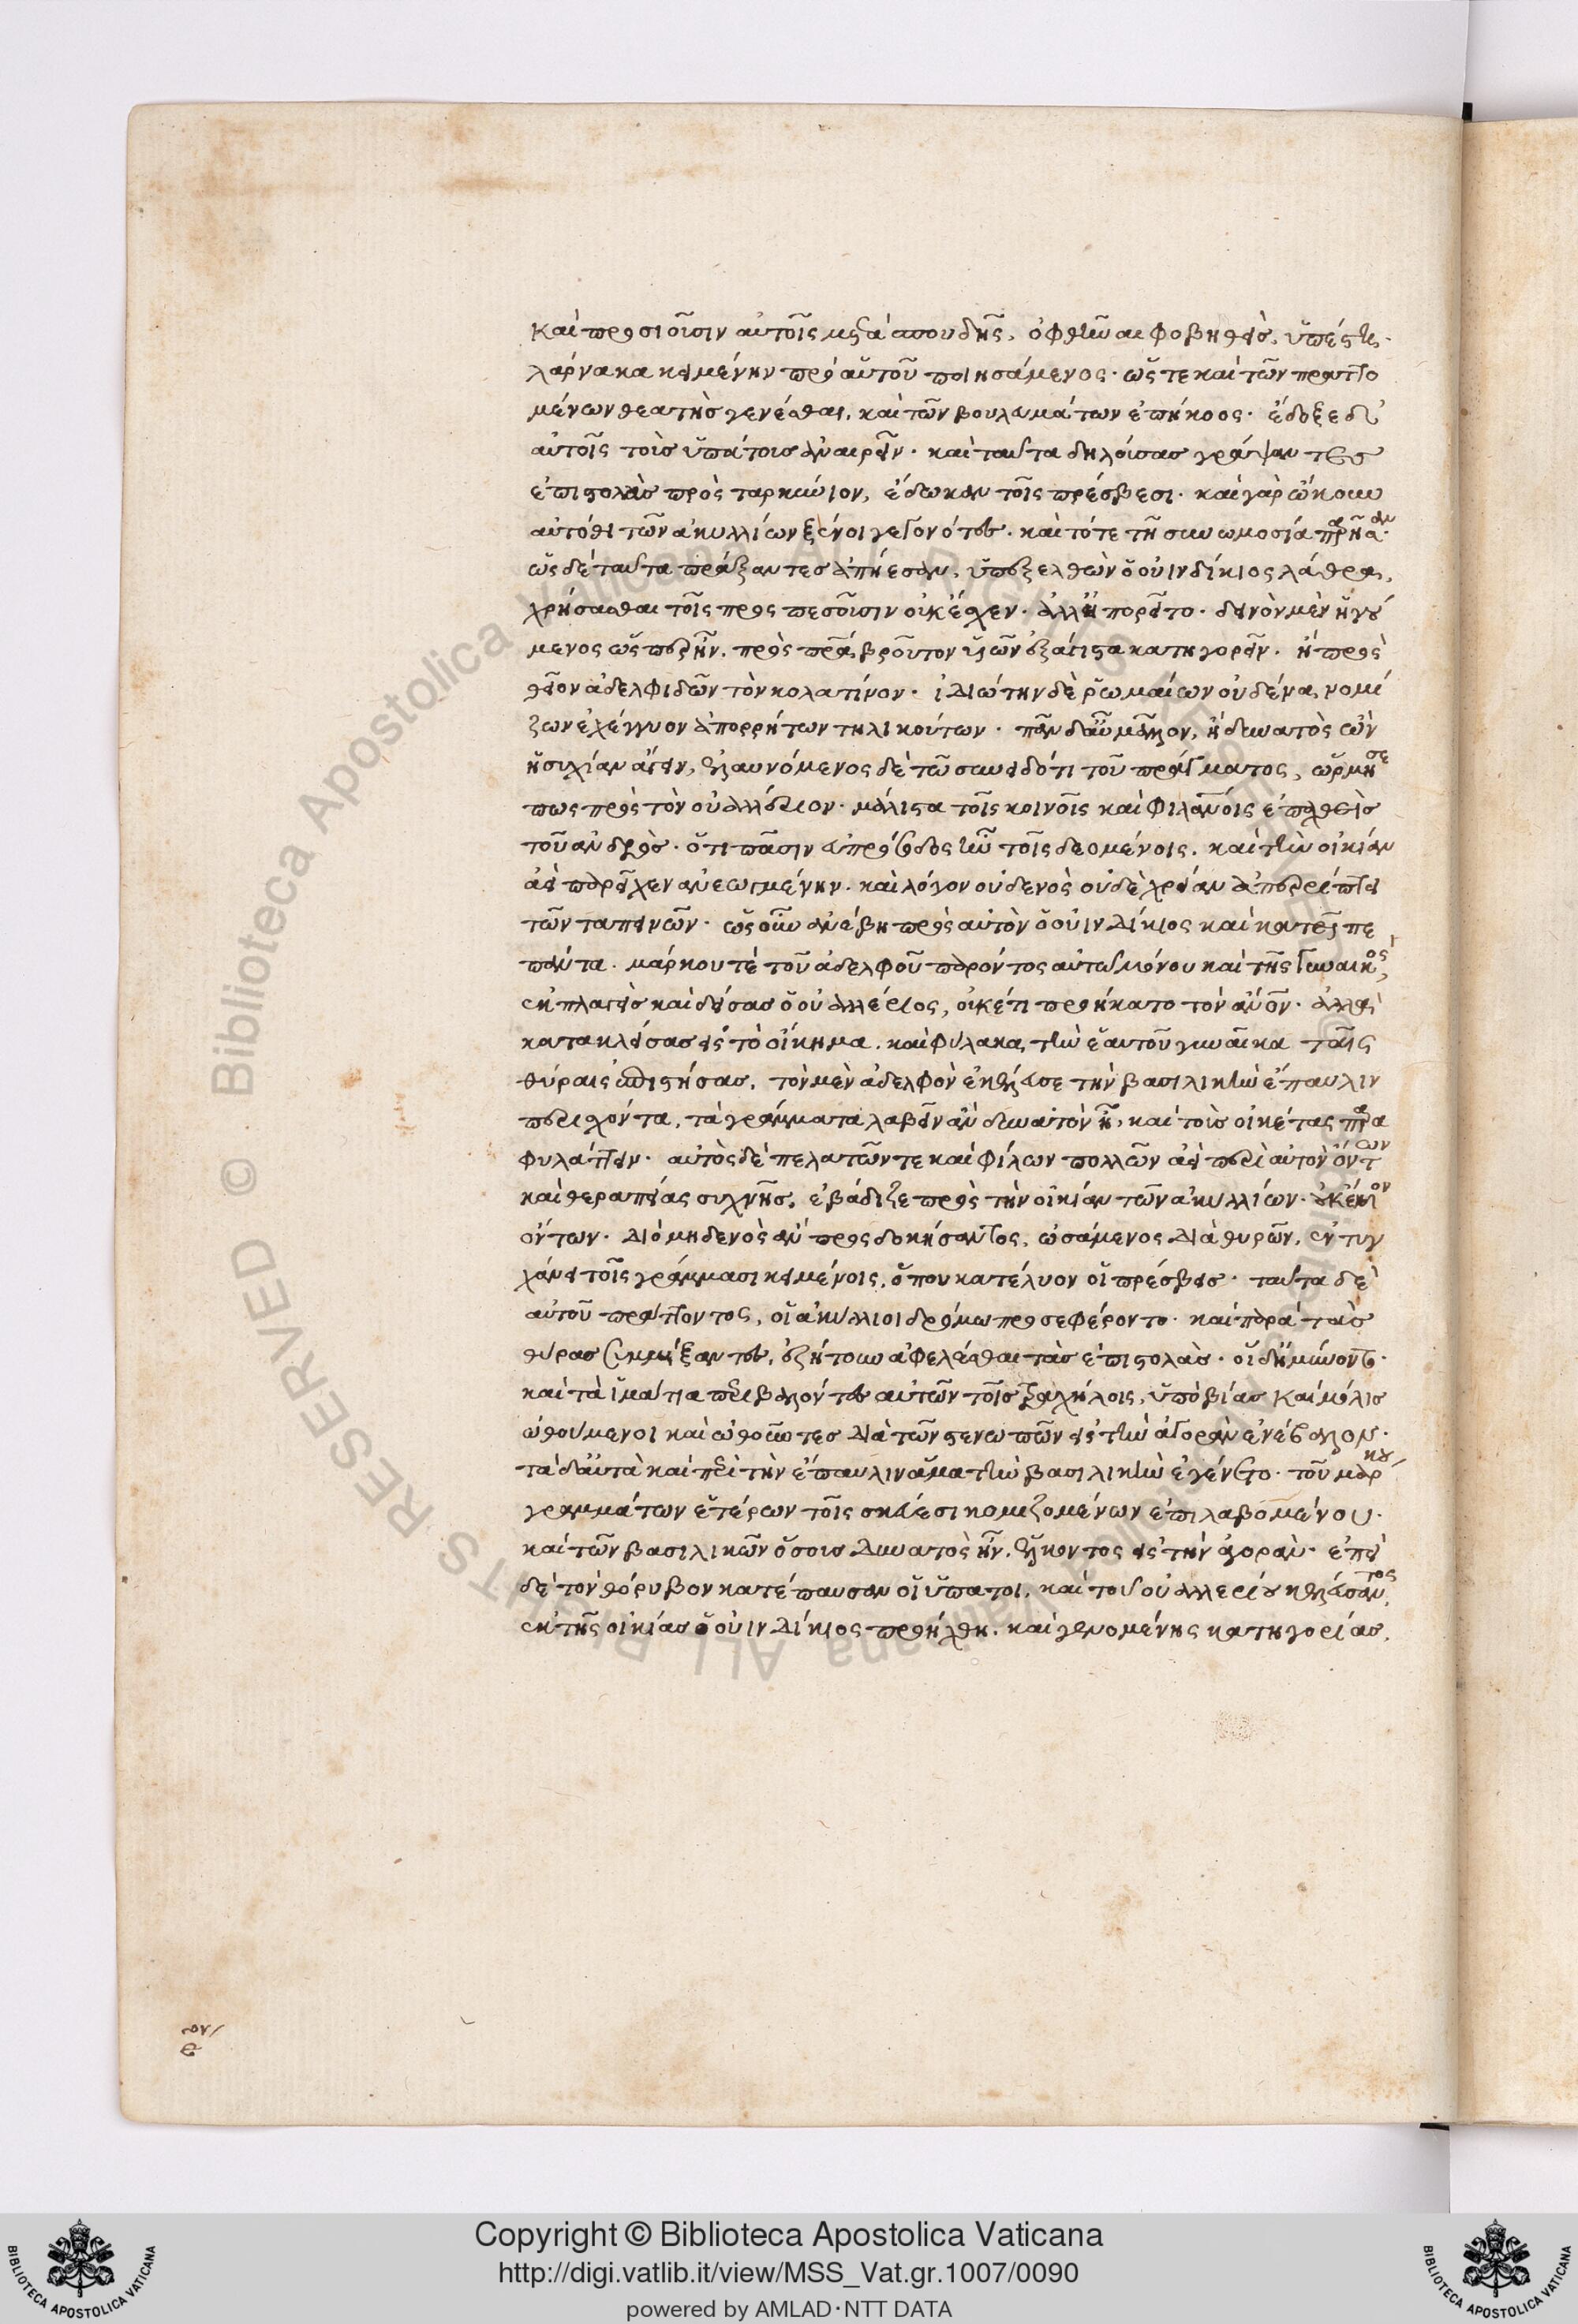 καὶ προσιοῦσιν αὐτοῖς μετὰ σπουδῆς, ὀφθῆναι φοβηθεὶς, ὑπέστη
λάρνακα κειμένην πρὸ αὑτοῦ ποιησάμενος· ὥστε καὶ τῶν πραττο
μένων θεατὴς γενέσθαι, καὶ τῶν βουλευμάτων ἐπήκοος· ἔδοξε δ'
αὐτοῖς τοὺς ὑπάτους ἀναιρεῖν· καὶ ταῦτα δηλούσας γράψαντες
ἐπιστολὰς πρὸς ταρκύνιον, ἔδωκαν τοῖς πρέσβεσι· καὶ γὰρ ᾤκουν
αὐτόθι τῶν ἀκυλλίων ξένοι γεγονότες· καὶ τότε τῇ συνωμοσίᾳ παρῆσαν·
ὡς δὲ ταῦτα πράξαντες ἀπῄεσαν, ὑπεξελθὼν ὁ οὐινδίκιος λάθρα,
χρήσασθαι τοῖς προσπεσοῦσιν οὐκ εἶχεν· ἀλλ' ἠπορεῖτο· δεινὸν μὲν ἡγού
μενος ὥσπερ ἦν, πρὸς πατέρα βροῦτον υἱῶν ἐξάγιστα κατηγορεῖν· ἢ πρὸς
θεῖον ἀδελφιδῶν τὸν κολατίνον· ἰδιώτην δὲ ῥωμαίων οὐδένα νομί
ζων ἐχέγγυον ἀπορρήτων τηλικούτων· πᾶν δ' αὖ μᾶλλον, ἢ δυνατὸς ὢν
ἡσυχίαν ἄγειν, ἐλαυνόμενος δὲ τῷ συνειδότι τοῦ πράγματος, ὥρμησε
πως πρὸς τὸν οὐαλλέριον· μάλιστα τοῖς κοινοῖς καὶ φιλανοις ἐπαχθεὶς
τοῦ ἀνδρὸς· ὅτι πᾶσιν εὐπρόσοδος ἦν τοῖς δεομένοις, καὶ τὴν οἰκίαν
ἀεὶ παρεῖχεν ἀνεῳγμένην· καὶ λόγον οὐδενὸς οὐδὲ χρείαν ἀπερρίπτει
τῶν ταπεινῶν· ὡς οὖν ἀνέβη πρὸς αὐτὸν ὁ οὐινδίκιος καὶ κατεῖπε
πάντα· μάρκου τὲ τοῦ ἀδελφοῦ παρόντος αὐτῷ μόνου καὶ τῆς γυναικός,
ἐκπλαγεὶς καὶ δείσας ὁ οὐαλλέριος, οὐκέτι προήκατο τὸν ἄνον· ἀλλὰ
κατακλείσας εἰς τὸ οἴκημα, καὶ φύλακα τὴν ἑαυτοῦ γυναῖκα ταῖς
θύραις ἐπιστήσας, τὸν μὲν ἀδελφὸν ἐκέλευσε τὴν βασιλικὴν ἔπαυλιν
περιεχόντα, τὰ γράμματα λαβεῖν ἂν δυνατὸν ᾖ, καὶ τοὺς οἰκέτας παρα
φυλάττειν· αὐτὸς δὲ πελατῶν τε καὶ φίλων πολλῶν ἀεὶ περὶ αὐτὸν ὄντων
καὶ θεραπείας συχνῆς, ἐβάδιζε πρὸς τὴν οἰκίαν τῶν ἀκυλλίων· οὐκ ἔνδον
ὄντων· διὸ μηδενὸς ἂν προσδοκήσαντος, ὠσάμενος διὰ θυρῶν, ἐντυγ
χάνει τοῖς γράμμασι κειμένοις, ὅπου κατέλυον οἱ πρέσβεις· ταῦτα δὲ
αὐτοῦ πράττοντος, οἱ ἀκύλλιοι δρόμῳ προσεφέροντο· καὶ παρὰ τὰς
θύρας συμμίξαντες, ἐζήτουν ἀφελέσθαι τὰς ἐπιστολὰς· οἱ δ' ἠμύνοντο·
καὶ τὰ ἱμάτια περιβαλόντες αὐτῶν τοῖς τραχήλοις, ὑπὸ βίας καὶ μόλις
ὠθούμενοι καὶ ὠθοῦντες διὰ τῶν στενωπῶν εἰς τὴν ἀγορὰν ἐνέβαλον·
τὰ δ' αὐτὰ καὶ περὶ τὴν ἔπαυλιν ἅμα τὴν βασιλικὴν ἐγένετο· τοῦ μάρκου
γραμμάτων ἑτέρων τοῖς σκεύεσι κομιζομένων ἐπιλαβομένου·
καὶ τῶν βασιλικῶν ὅσους δυνατὸς ἦν, ἕλκοντος εἰς τὴν ἀγορὰν· ἐπεὶ
δὲ τὸν θόρυβον κατέπαυσαν οἱ ὕπατοι, καὶ τοῦ οὐαλλερίου κελεύσαντος,
ἐκ τῆς οἰκίας ὁ οὐινδίκιος προήχθη, καὶ γενομένης κατηγορίας,
Copyright © Biblioteca Apostolica Vaticana
http://digi.vatlib.it/view/MSS_Vat.gr.1007/0090
powered by AMLAD·NTT DATA